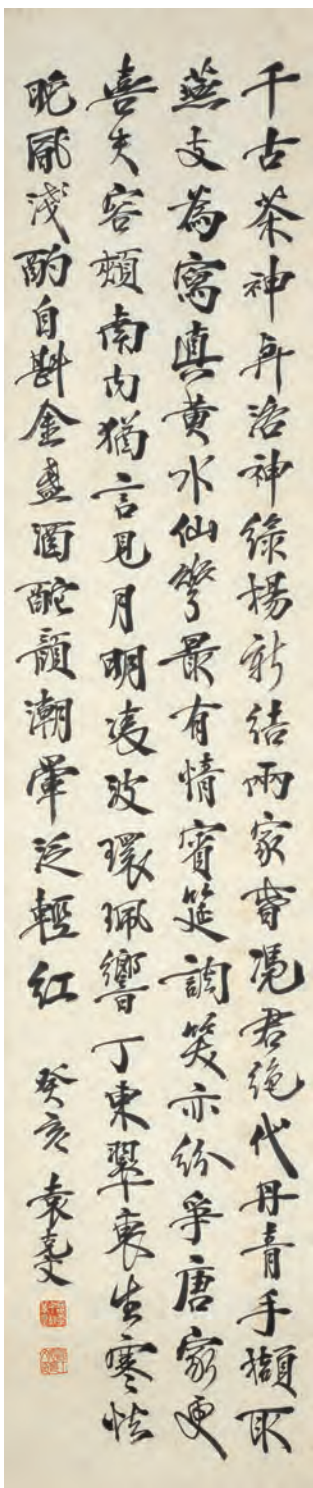 千古茶神洛神綠楊新結兩家旾憑君絕代丹青手擷取
燕支為寫真黃水仙最有情宵筵調笑亦紛爭唐家更
喜夫容頰南內猶言見月明凌波環珮響丁東翠褏生寒怯
晚風淺酌自斟金盞酒酡顏潮暈泛輕紅 癸亥 袁克文